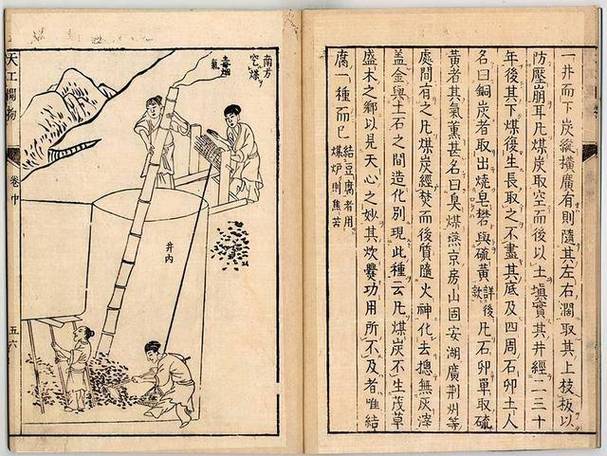 一井而下炭縱橫廣有則隨其左右濶取其上枝板以
防壓崩耳凡煤炭取空而後以土塡實其井經二三十
年後其下煤復生長取之不盡其底及四周石卵土人
名曰銅炭者取出燒皂礬與硫黃詳後款凡石卵單取硫
黃者其氣薰甚名曰臭煤燕京房山固安湖廣荊州等
處間有之凡煤炭經焚而後質隨火神化去摠無灰滓
蓋金與土石之間造化別現此種云凡煤炭不生茂草
盛木之鄉以見天心之妙其炊爨功用所不及者唯結
腐一種而已結豆腐者用
煤炉則焦苦
南方
穵煤
毒烟
氣
井內
天工開物
卷中
五六